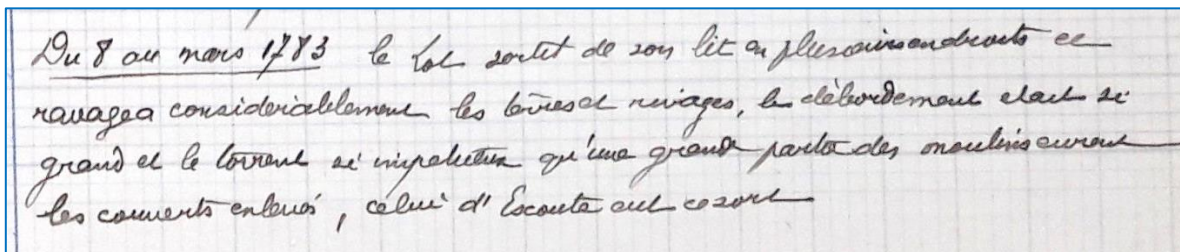 Du 8 au mars 1783 le Lot sortit de son lit en plusieurs endroits et
ravagea considerablement les terres et rivages, le débordement etait si
grand et le torrent si impetueux qu'une grande partie des moulins eurent
les couverts enlevés, celui d'Escoute eut ce sort